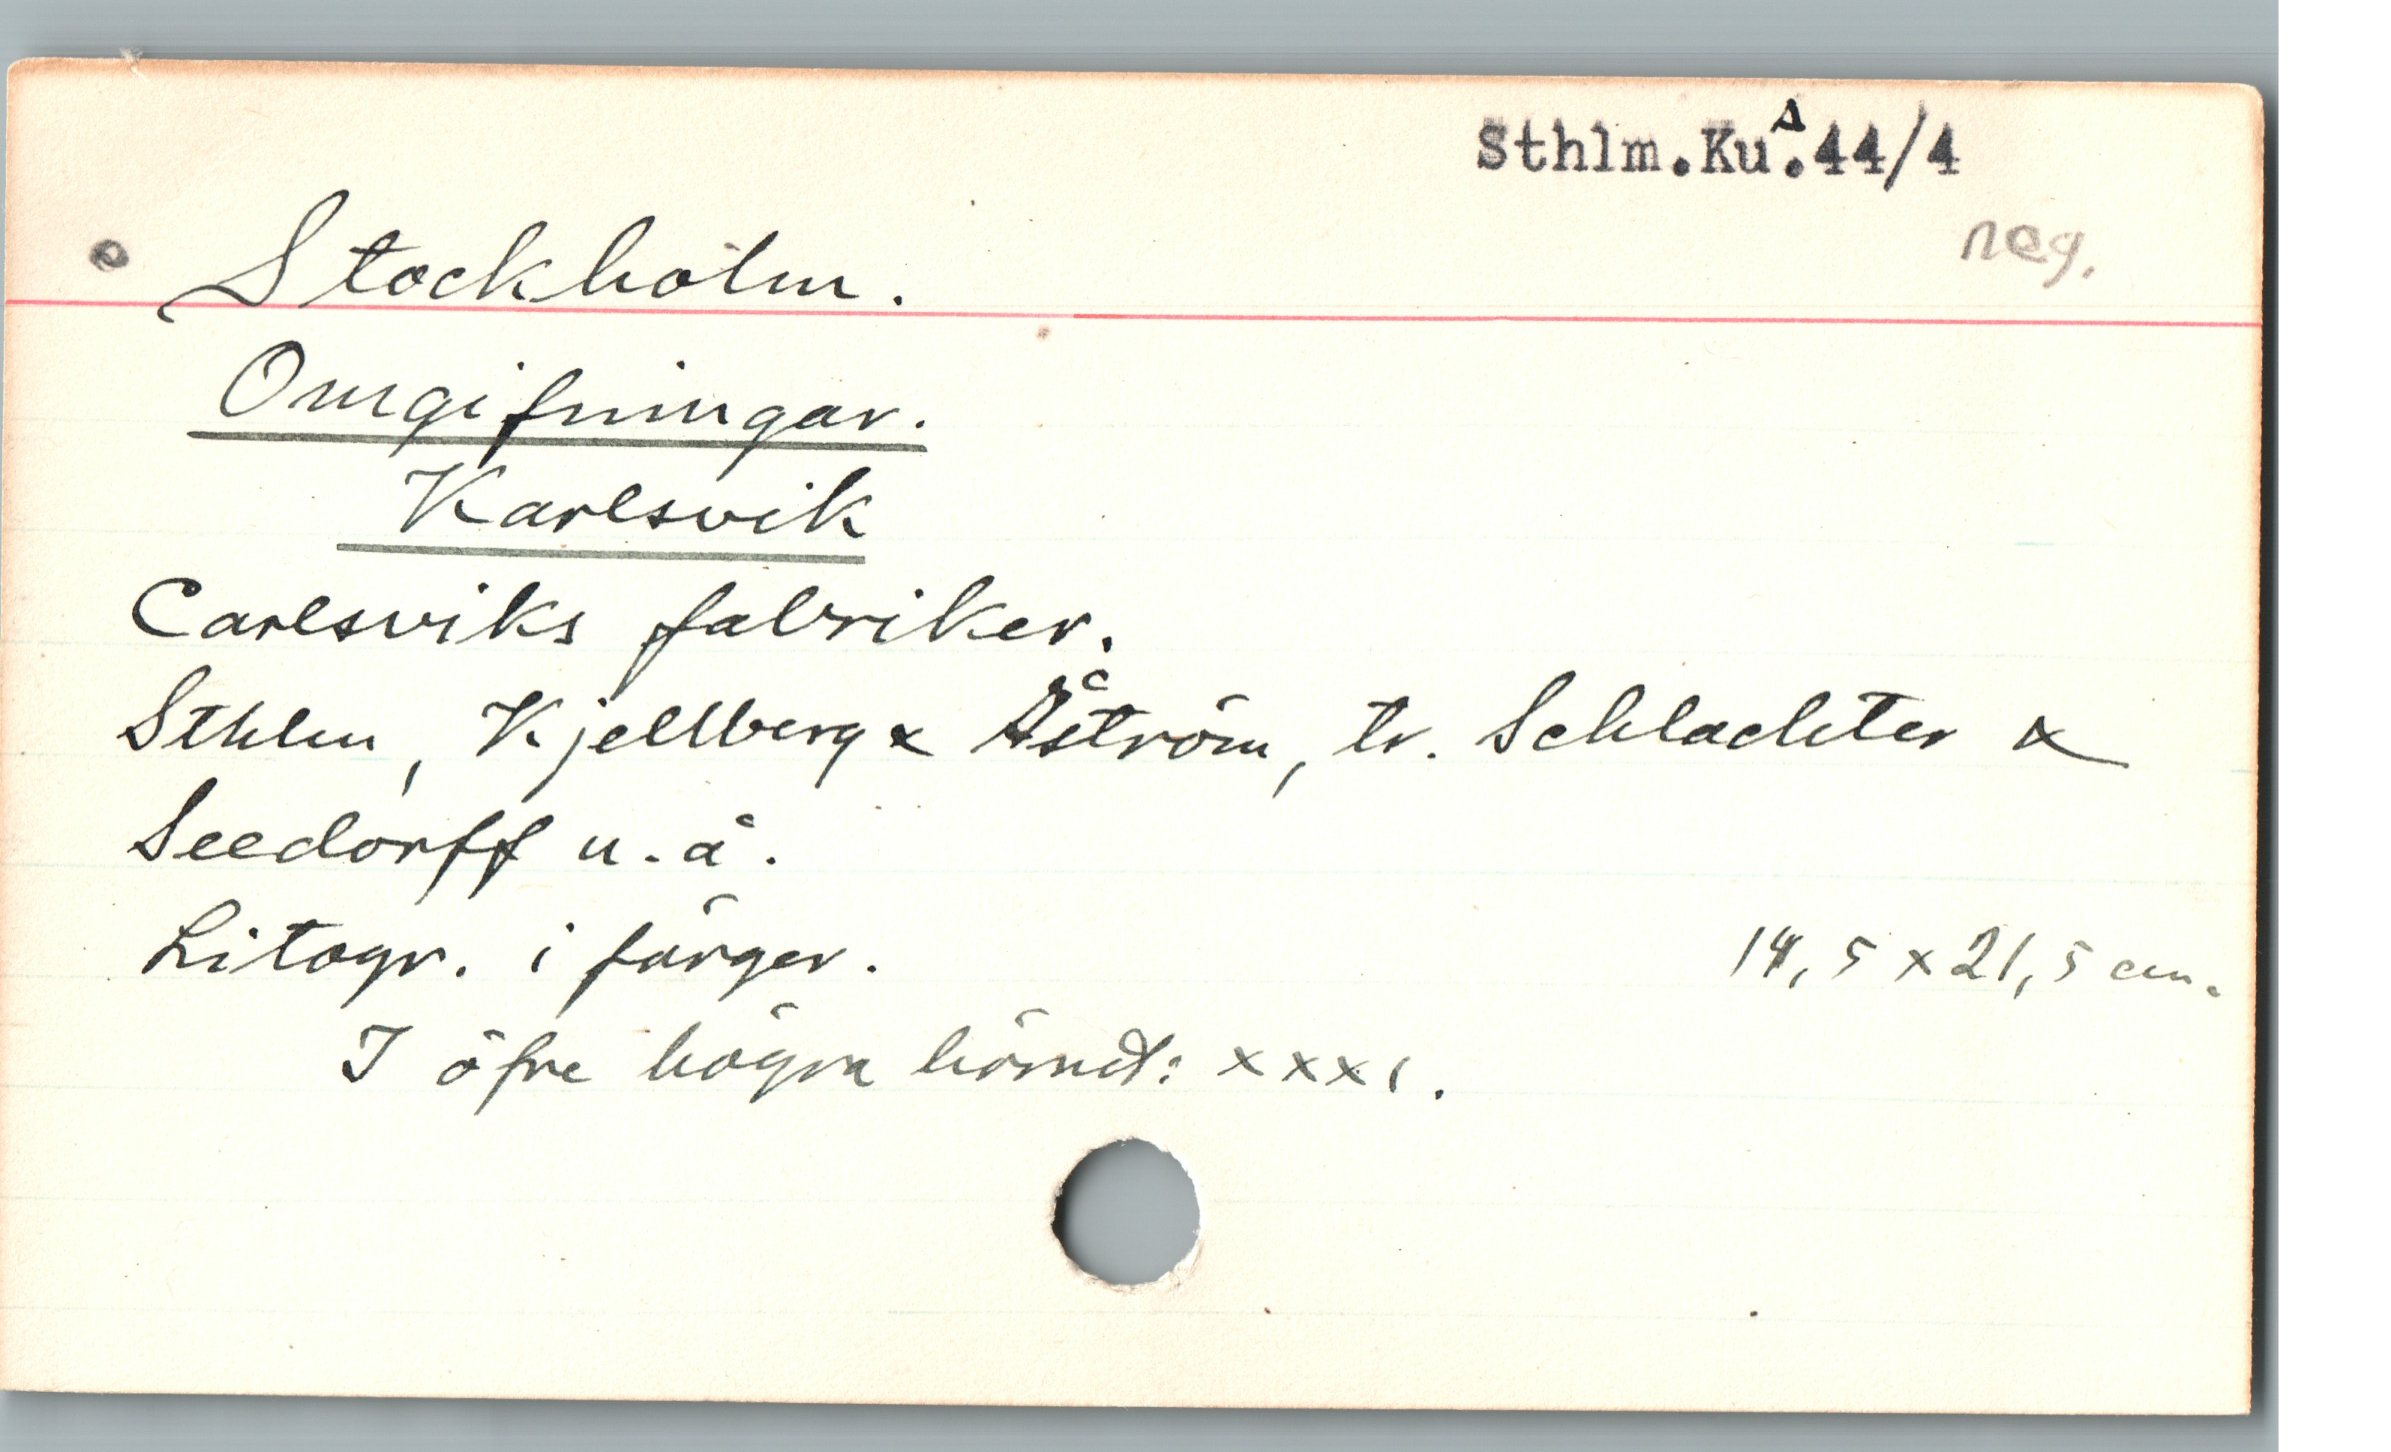 Sthlm.Ku.A44/4
neg.
Stockholm.
Omgifningar.
Karlsvik
Carlsviks fabriker.
Sthlm, Kjellberg & Åström, tr. Schlachter &
Seedorff u.å.
Litogr. i färger. 14,5 x 21,5 cm.
I öfre högra hörnet: XXXI.